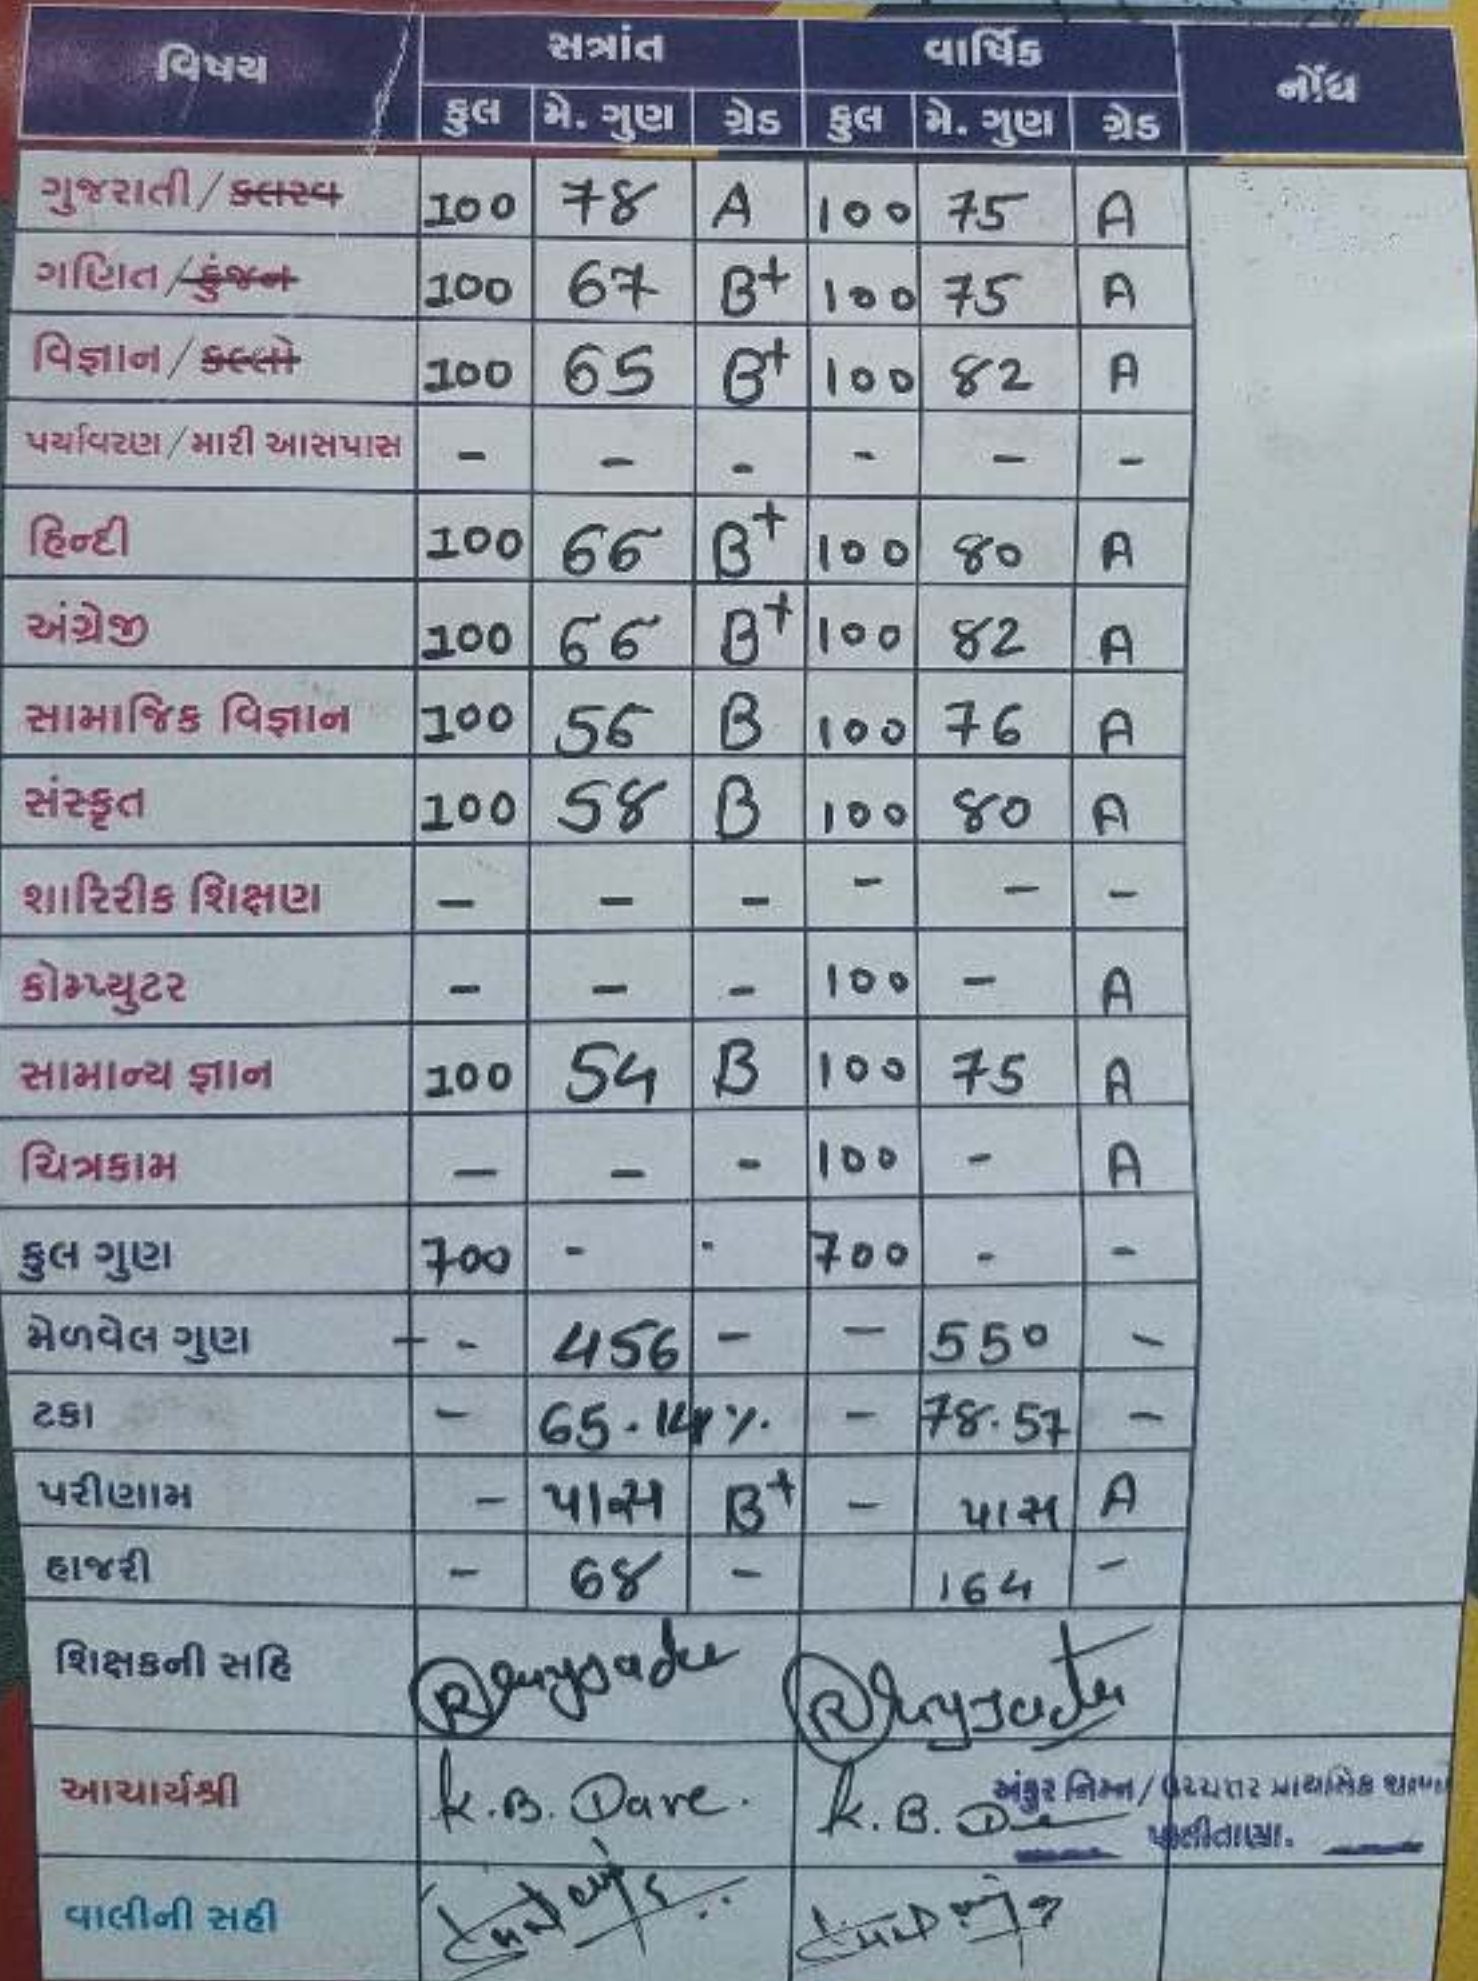 વિષય સત્રાંત વાર્ષિક નોંધ
કુલ મે. ગુણ ગ્રેડ કુલ મે. ગુણ ગ્રેડ
ગુજરાતી / કલરવ 100 78 A 100 75 A
ગણિત / કુંજન 100 67 B+ 100 75 A
વિજ્ઞાન / કલ્લો 100 65 B+ 100 82 A
પર્યાવરણ / મારી આસપાસ - - - - - -
હિન્દી 100 66 B+ 100 80 A
અંગ્રેજી 100 66 B+ 100 82 A
સામાજિક વિજ્ઞાન 100 56 B 100 76 A
સંસ્કૃત 100 58 B 100 80 A
શારિરીક શિક્ષણ - - - - - -
કોમ્પ્યુટર - - - 100 - A
સામાન્ય જ્ઞાન 100 54 B 100 75 A
ચિત્રકામ - - - 100 - A
કુલ ગુણ 700 - - 700 - -
મેળવેલ ગુણ - 456 - - 550 -
ટકા - 65.14% - 78.57 -
પરીણામ - પાસ B+ - પાસ A
હાજરી - 68 - 164 -
શિક્ષકની સહિ
આચાર્યશ્રી K.B. Dave. K. B. De
અંકુર નિમ્ન / ઉચ્ચત્તર પ્રાથમિક શાળા
પાલીતાણા.
વાલીની સહી